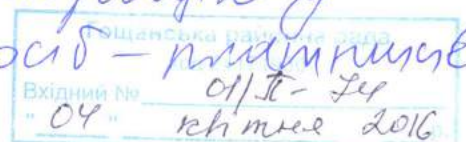 осіб – платників
Гощанська районна рада
Вхідний № 01/П-74
"04" квітня 2016 р.